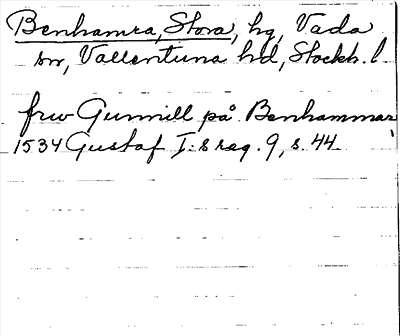 Benhamra, Stora, hg, Vada
sn, Vallentuna hd, Stockh. l.
frw Gunnill på Benhammar
1534 Gustaf I:s reg. 9, s. 44.